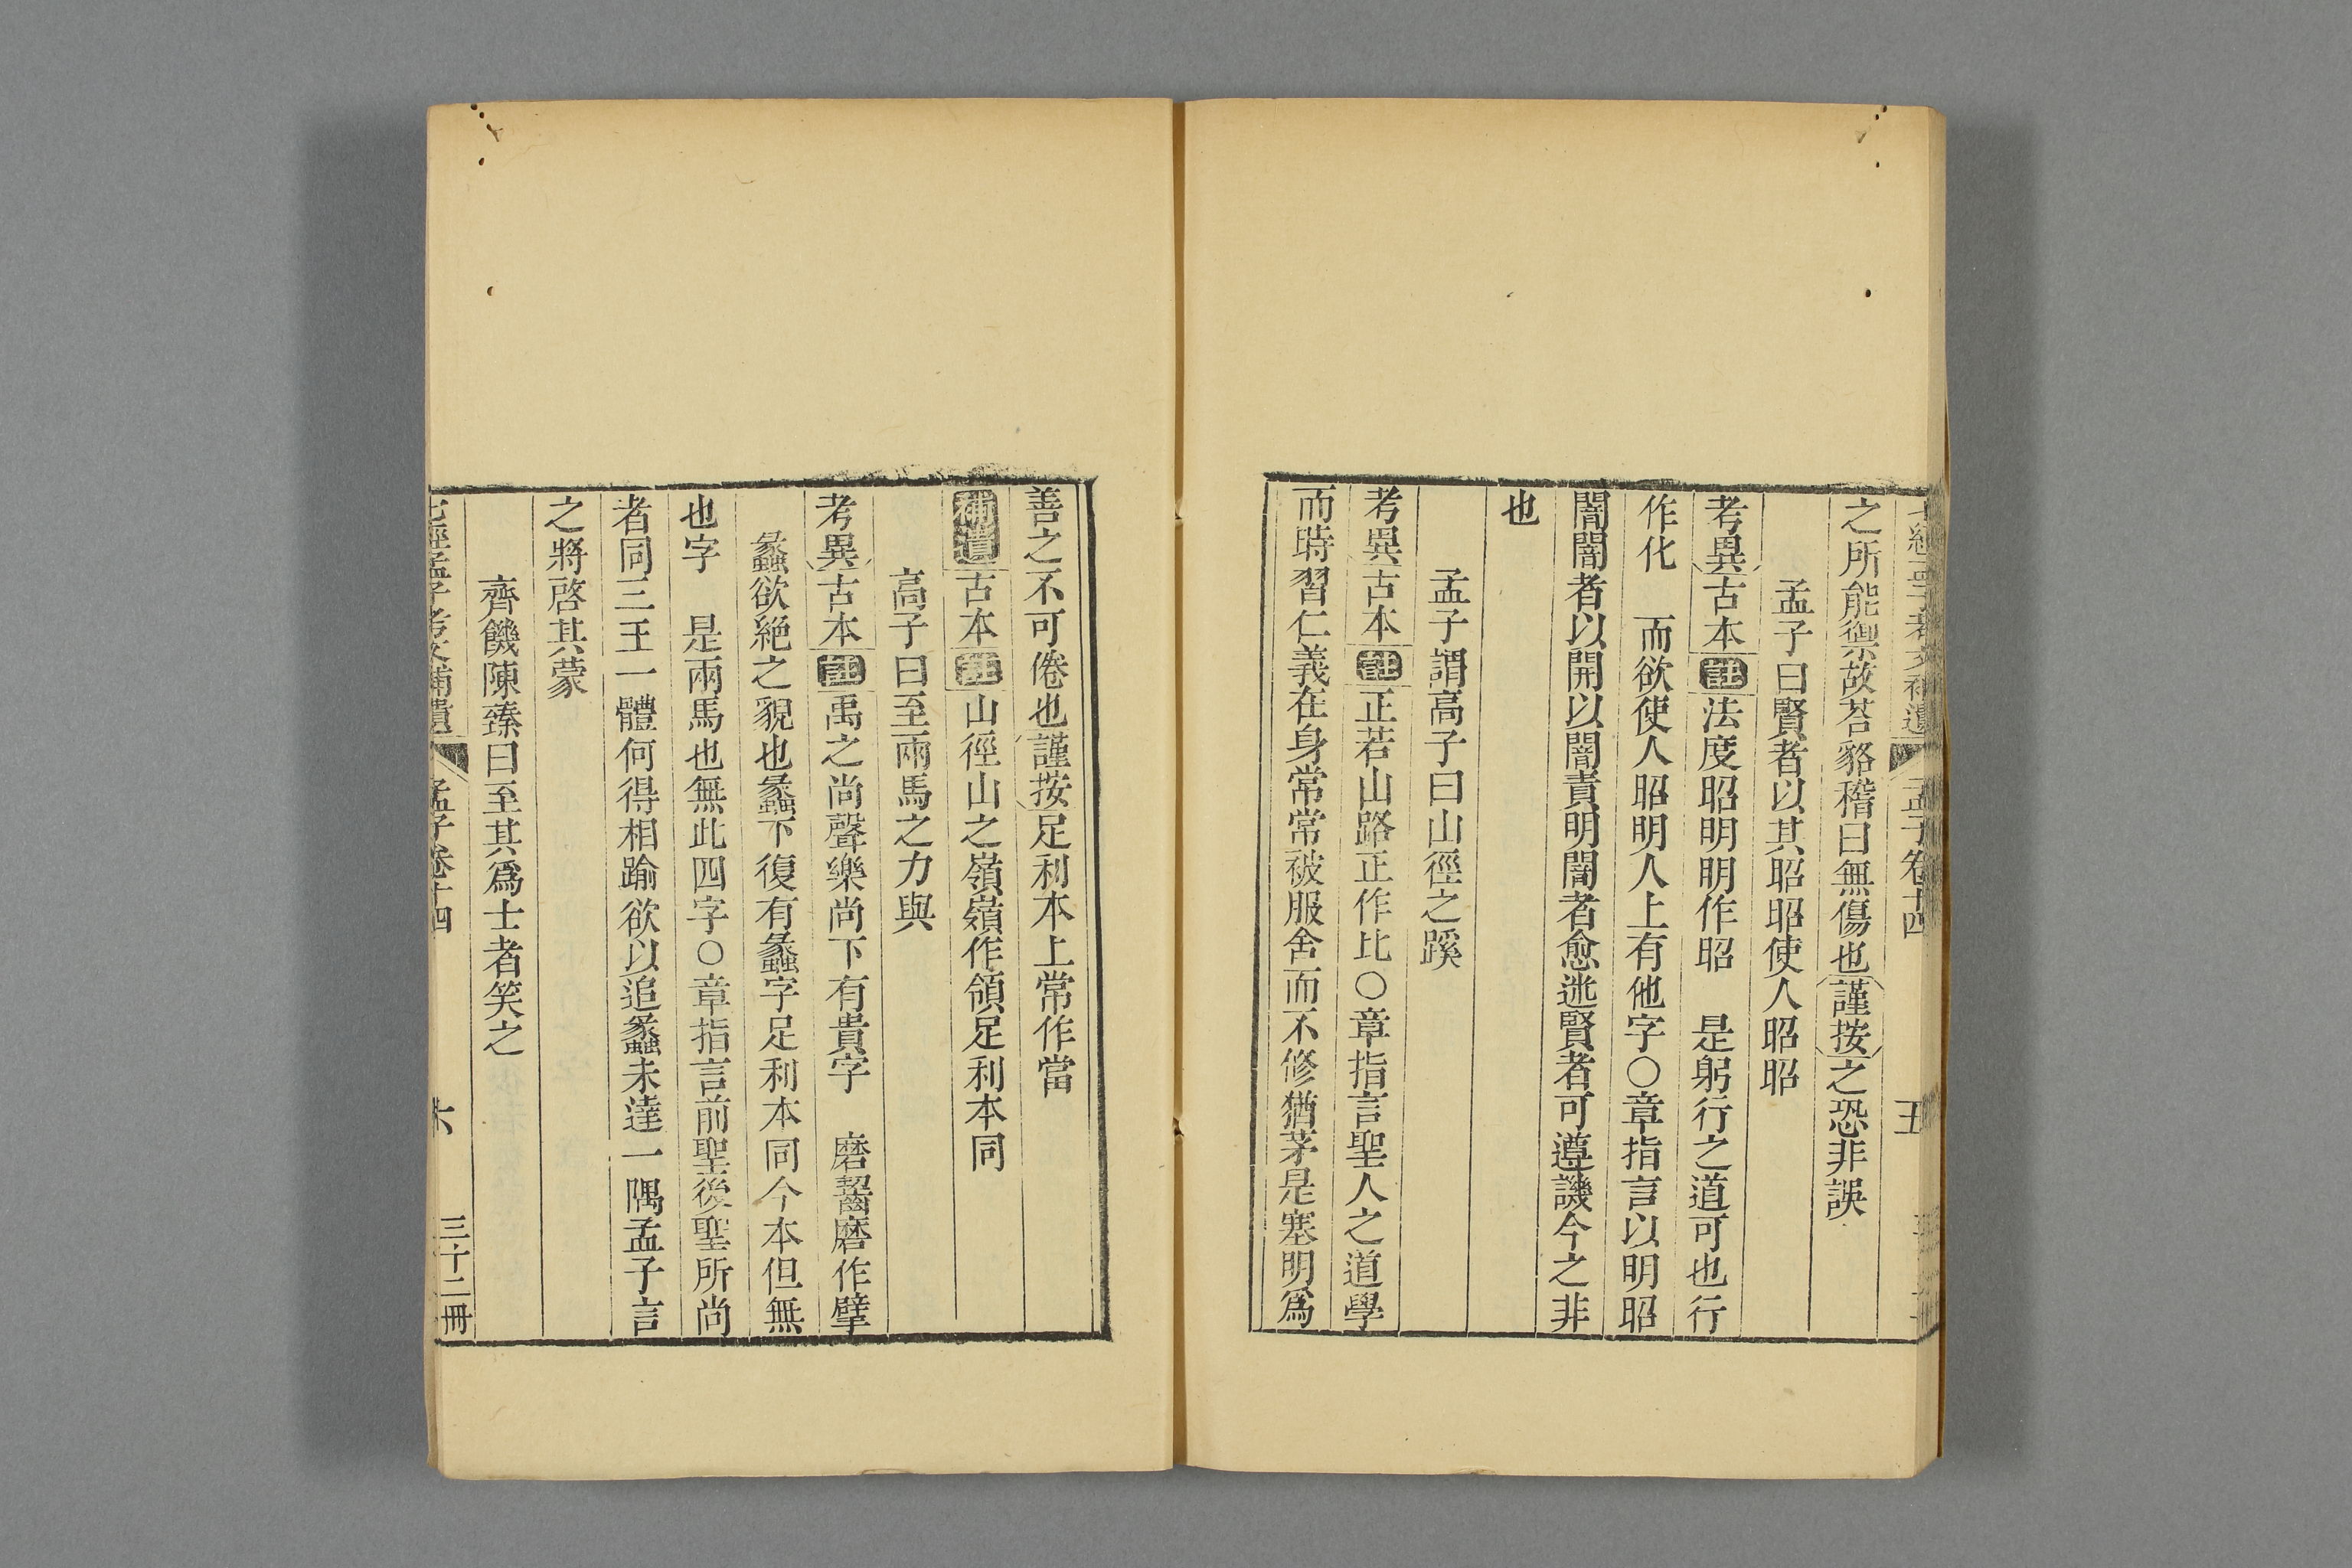 七經孟子考文補遺 孟子卷十四 五
之所能禦故荅貉稽曰無傷也謹按之恐非誤
孟子曰賢者以其昭昭使人昭昭
考異古本註法度昭明明作昭 是躬行之道可也行
作化 而欲使人昭明人上有他字〇章指言以明昭
闇闇者以開以闇責明闇者愈迷賢者可遵譏今之非
也
孟子謂高子曰山徑之蹊
考異古本註正若山路正作比〇章指言聖人之道學
而時習仁義在身常常被服舍而不修猶茅是塞明爲
善之不可倦也謹按足利本上常作當
補遺古本註山徑山之嶺嶺作領足利本同
高子曰至兩馬之力與
考異古本註禹之尚聲樂尚下有貴字 磨齧磨作擘
蠡欲絕之貌也蠡下復有蠡字足利本同今本但無
也字 是兩馬也無此四字〇章指言前聖後聖所尚
者同三王一體何得相踰欲以追蠡未達一隅孟子言
之將啓其蒙
齊饑陳臻曰至其爲士者笑之
七經孟子考文補遺 孟子卷十四 六 三十二冊